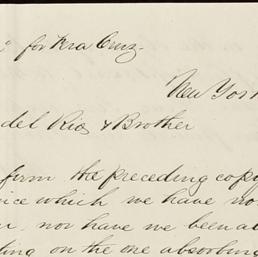 for Vera Cruz.
New York
del Rio & Brother
firm the preceding copy
nce which we have no
nor have we been a
ting on the one absorbing